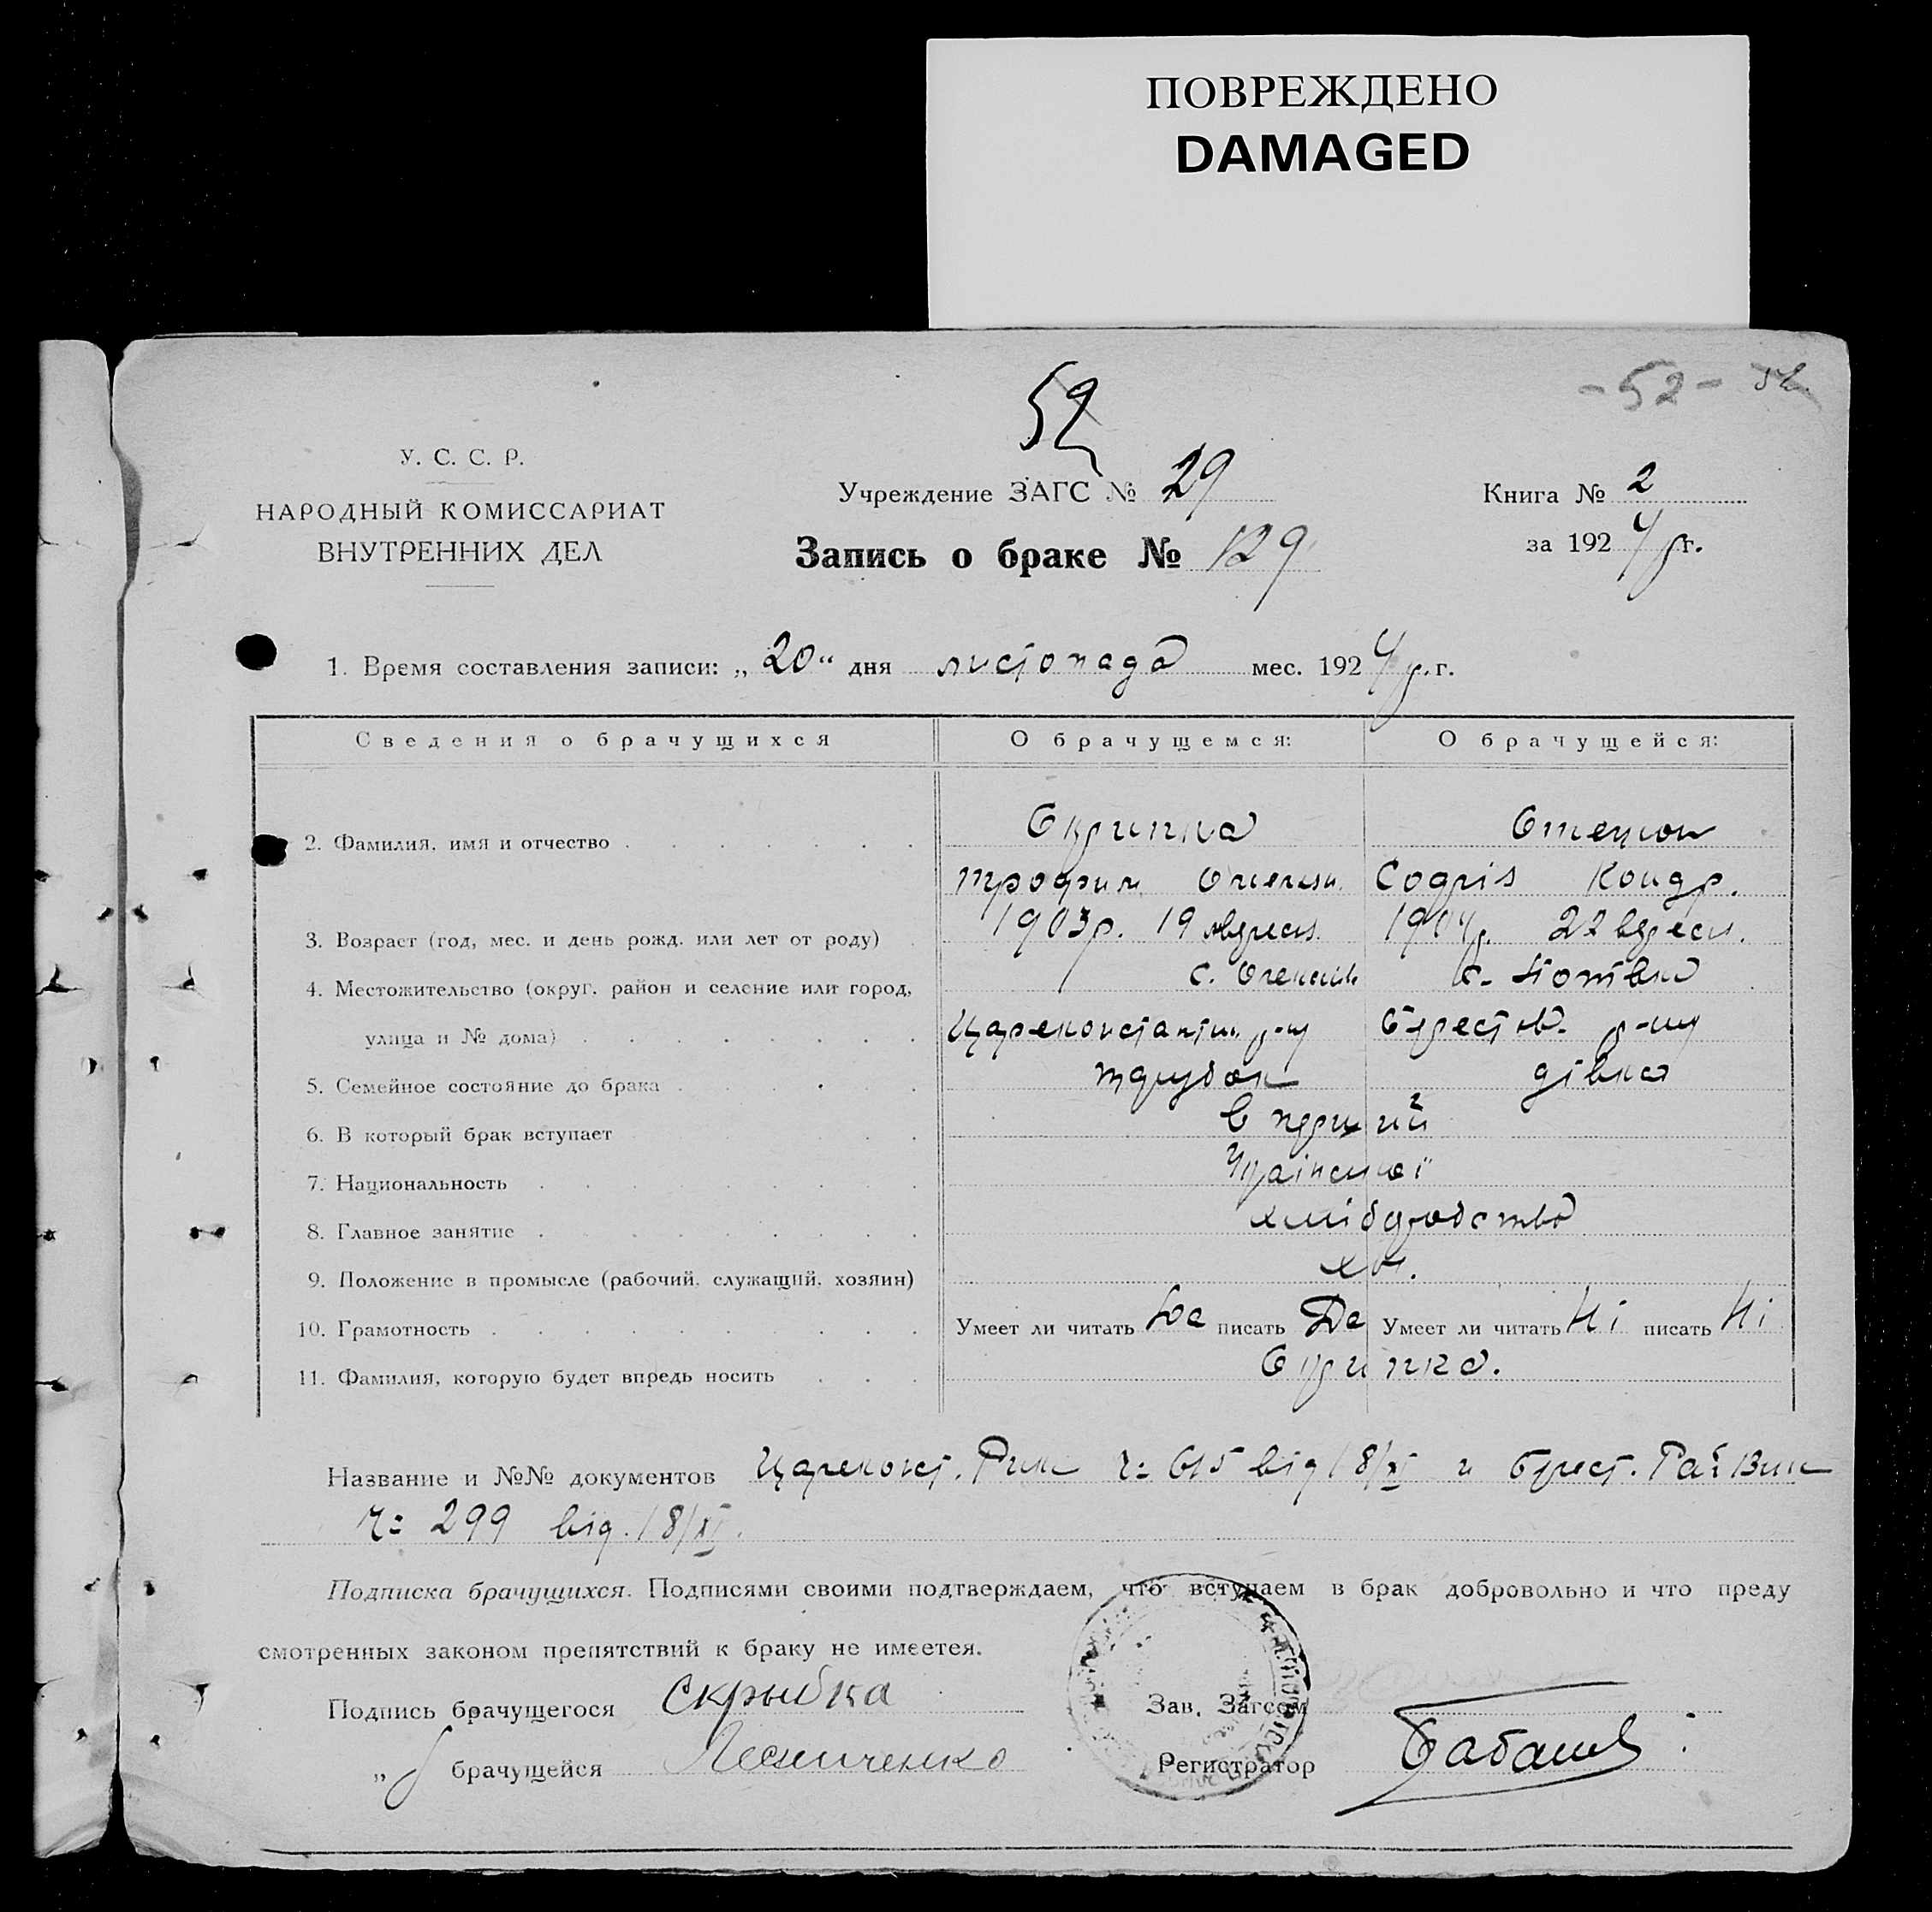 ПОВРЕЖДЕНО
DAMAGED
52
- 52 -
У. С. С. Р.
НАРОДНЫЙ КОМИССАРИАТ
ВНУТРЕННИХ ДЕЛ
Учреждение ЗАГС № 29
Запись о браке № 129
Книга № 2
за 1924 р г.
1. Время составления записи: „20“ дня листопада мес. 1924 р. г.
Сведения о брачущихся О брачущемся: О брачущейся:
2. Фамилия, имя и отчество
Скрипка
Трофим Софія Кондр.
3. Возраст (год, мес. и день рожд. или лет от роду) 1903р. 19 вересн. 1904р. 22 вересн.
4. Местожительство (округ, район и селение или город, с. с.
улица и № дома) Цареконстантин. р-ну Берестов. р-ну
5. Семейное состояние до брака парубок дівка
6. В который брак вступает в перший
7. Национальность Української
8. Главное занятие хліборобство
9. Положение в промысле (рабочий, служащий, хозяин)
10. Грамотность Умеет ли читать Да писать Да Умеет ли читать Ні писать Ні
11. Фамилия, которую будет впредь носить Скрипка.
Название и №№ документов Цареконст. Рик ч: 615 від 18/XI и Берест. РайВик
ч: 299 від. 18/XI.
Подписка брачущихся. Подписями своими подтверждаем, что вступаем в брак добровольно и что преду
смотренных законом препятствий к браку не имеетея.
Подпись брачущегося Скрыбка
Зав. Загсом
„ брачущейся
Регистратор